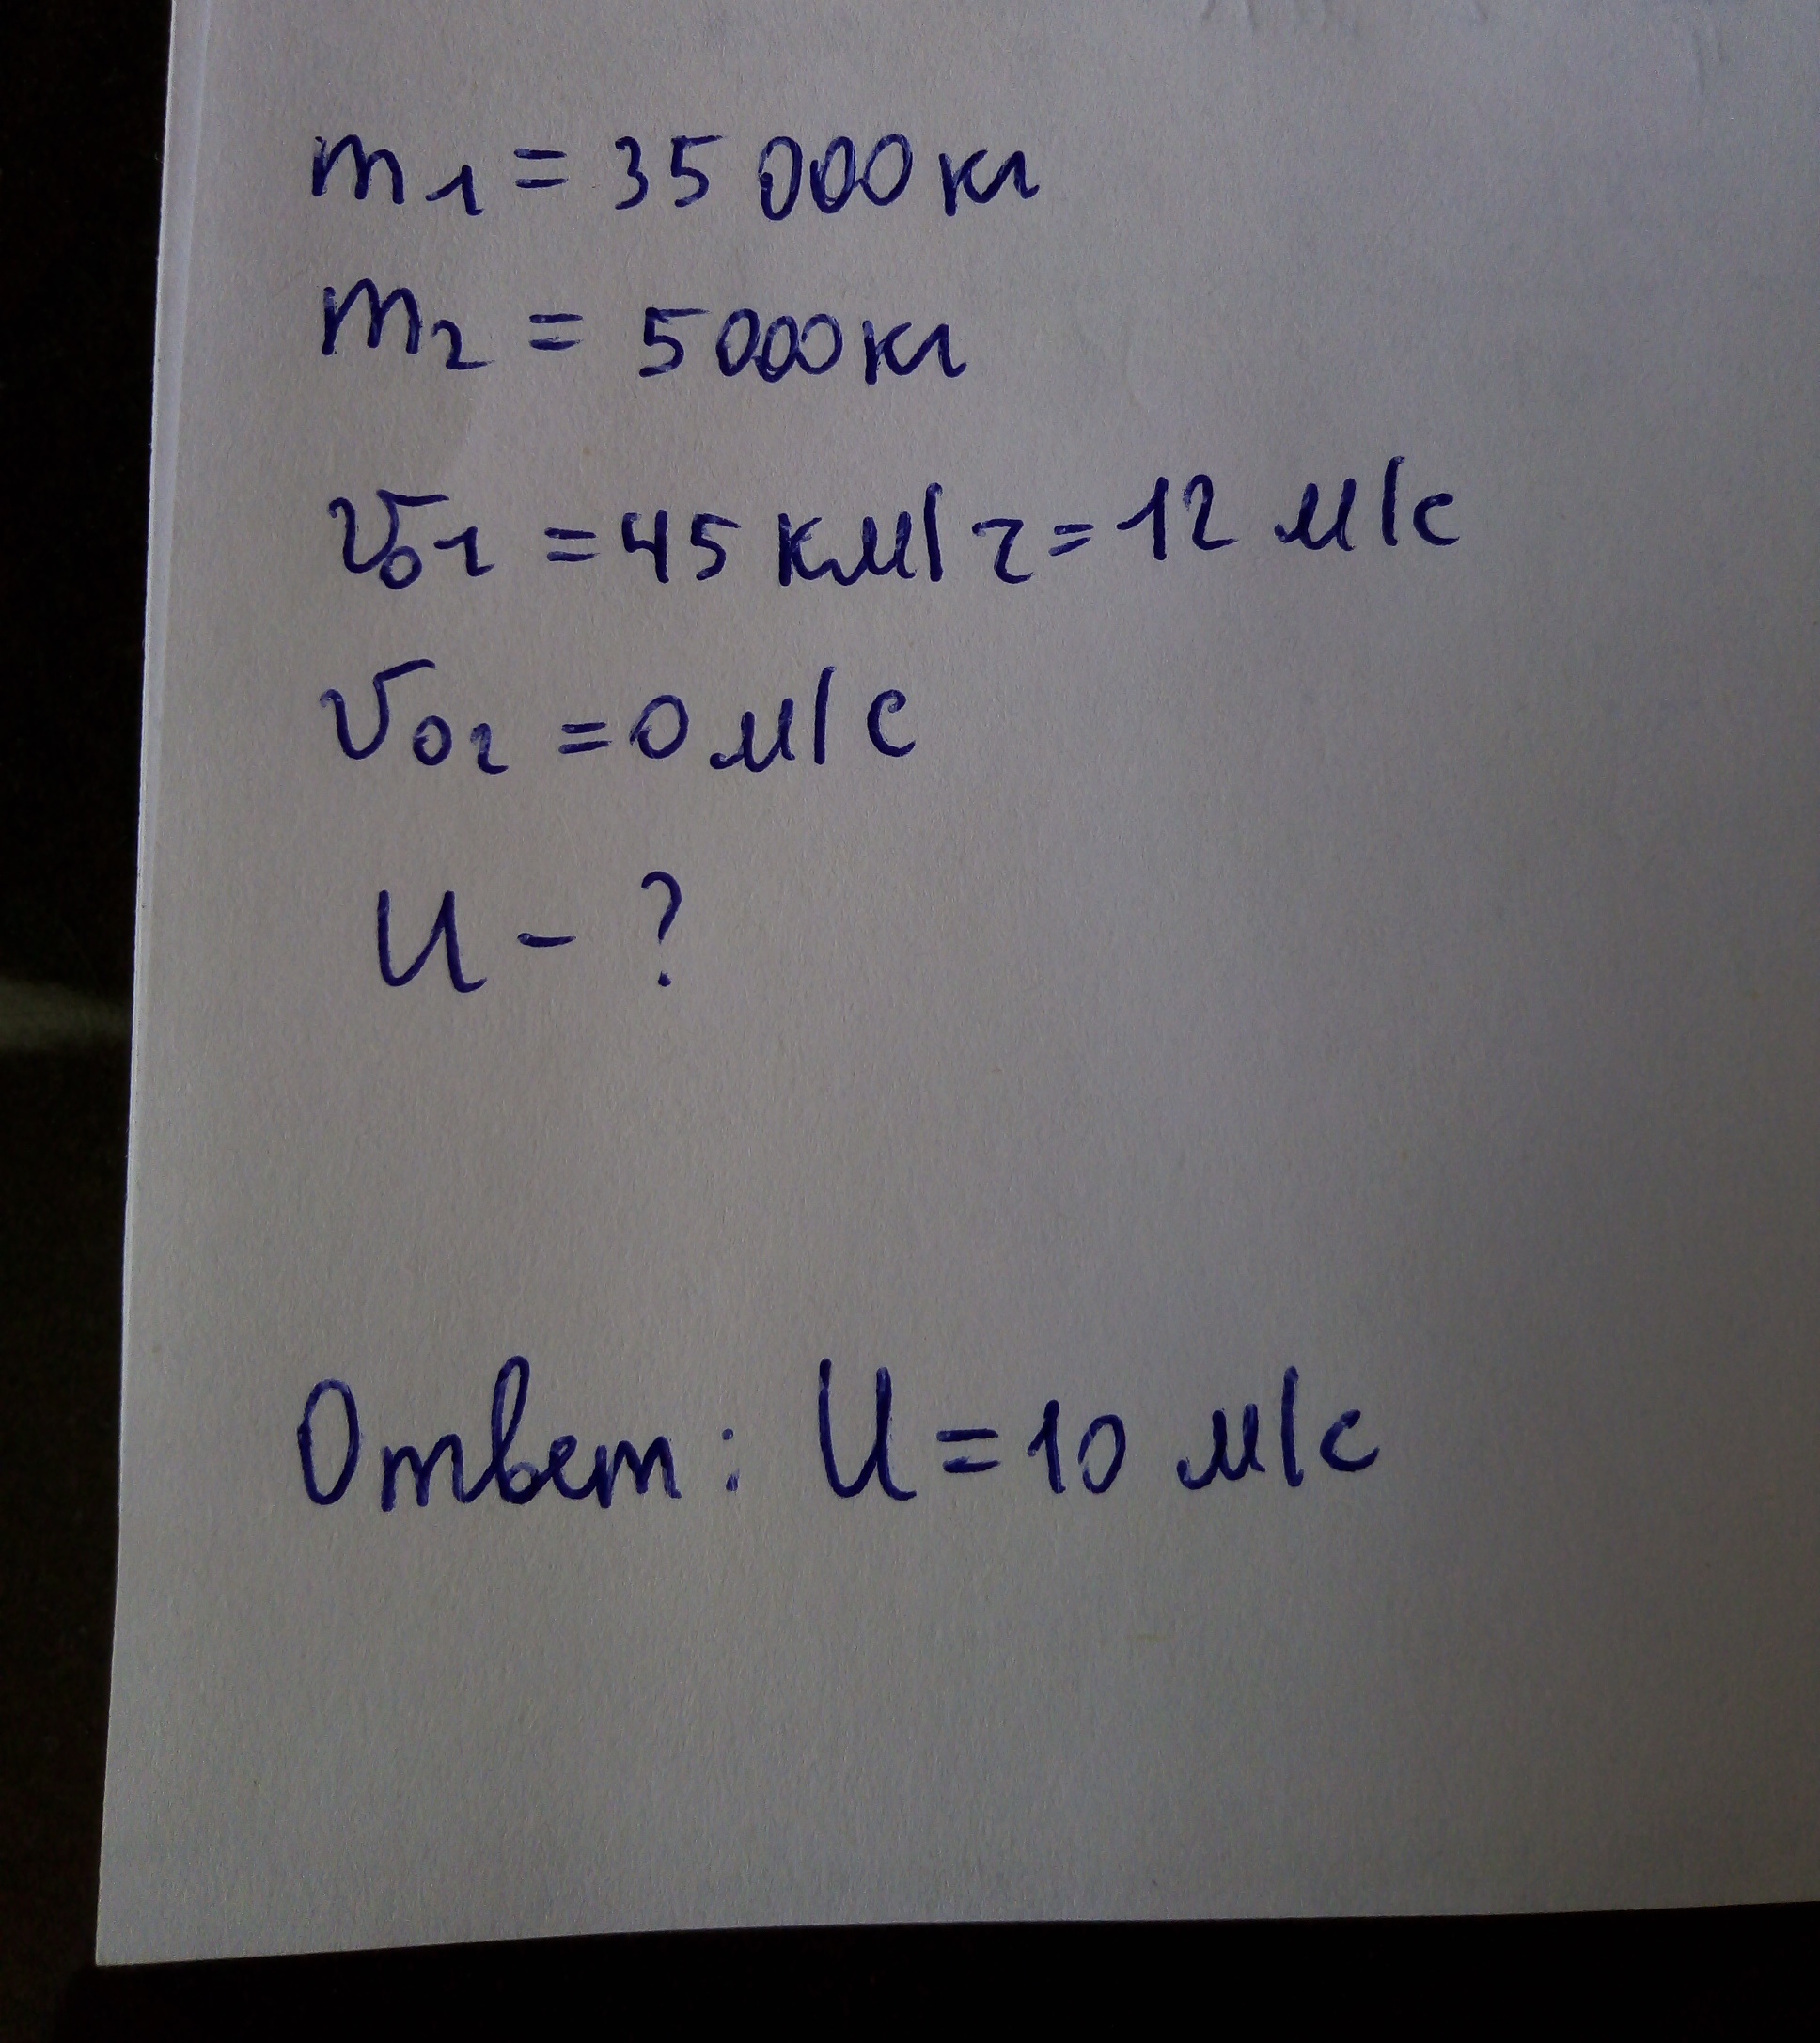 m₁ = 35 000 кг
m₂ = 5 000 кг
v₀₁ = 45 км/ч = 12 м/с
v₀₂ = 0 м/с
U - ?
Ответ: U = 10 м/с